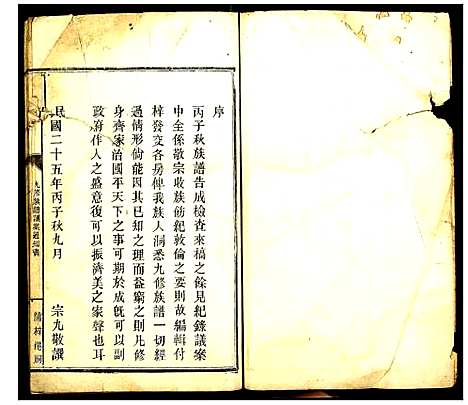 序
丙子秋族譜告成檢查來稿之餘見紀錄議案
中全係敬宗收族飭紀敦倫之要則故編輯付
梓發交各房俾我族人洞悉九修族譜一切經
過情形尙能因其已知之理而益窮之則凡修
身齊家治國平天下之事可期於成旣可以副
政府作人之盛意復可以振濟美之家聲也耳
民國二十五年丙子秋九月　宗九敬譔
九修族譜議案通知書